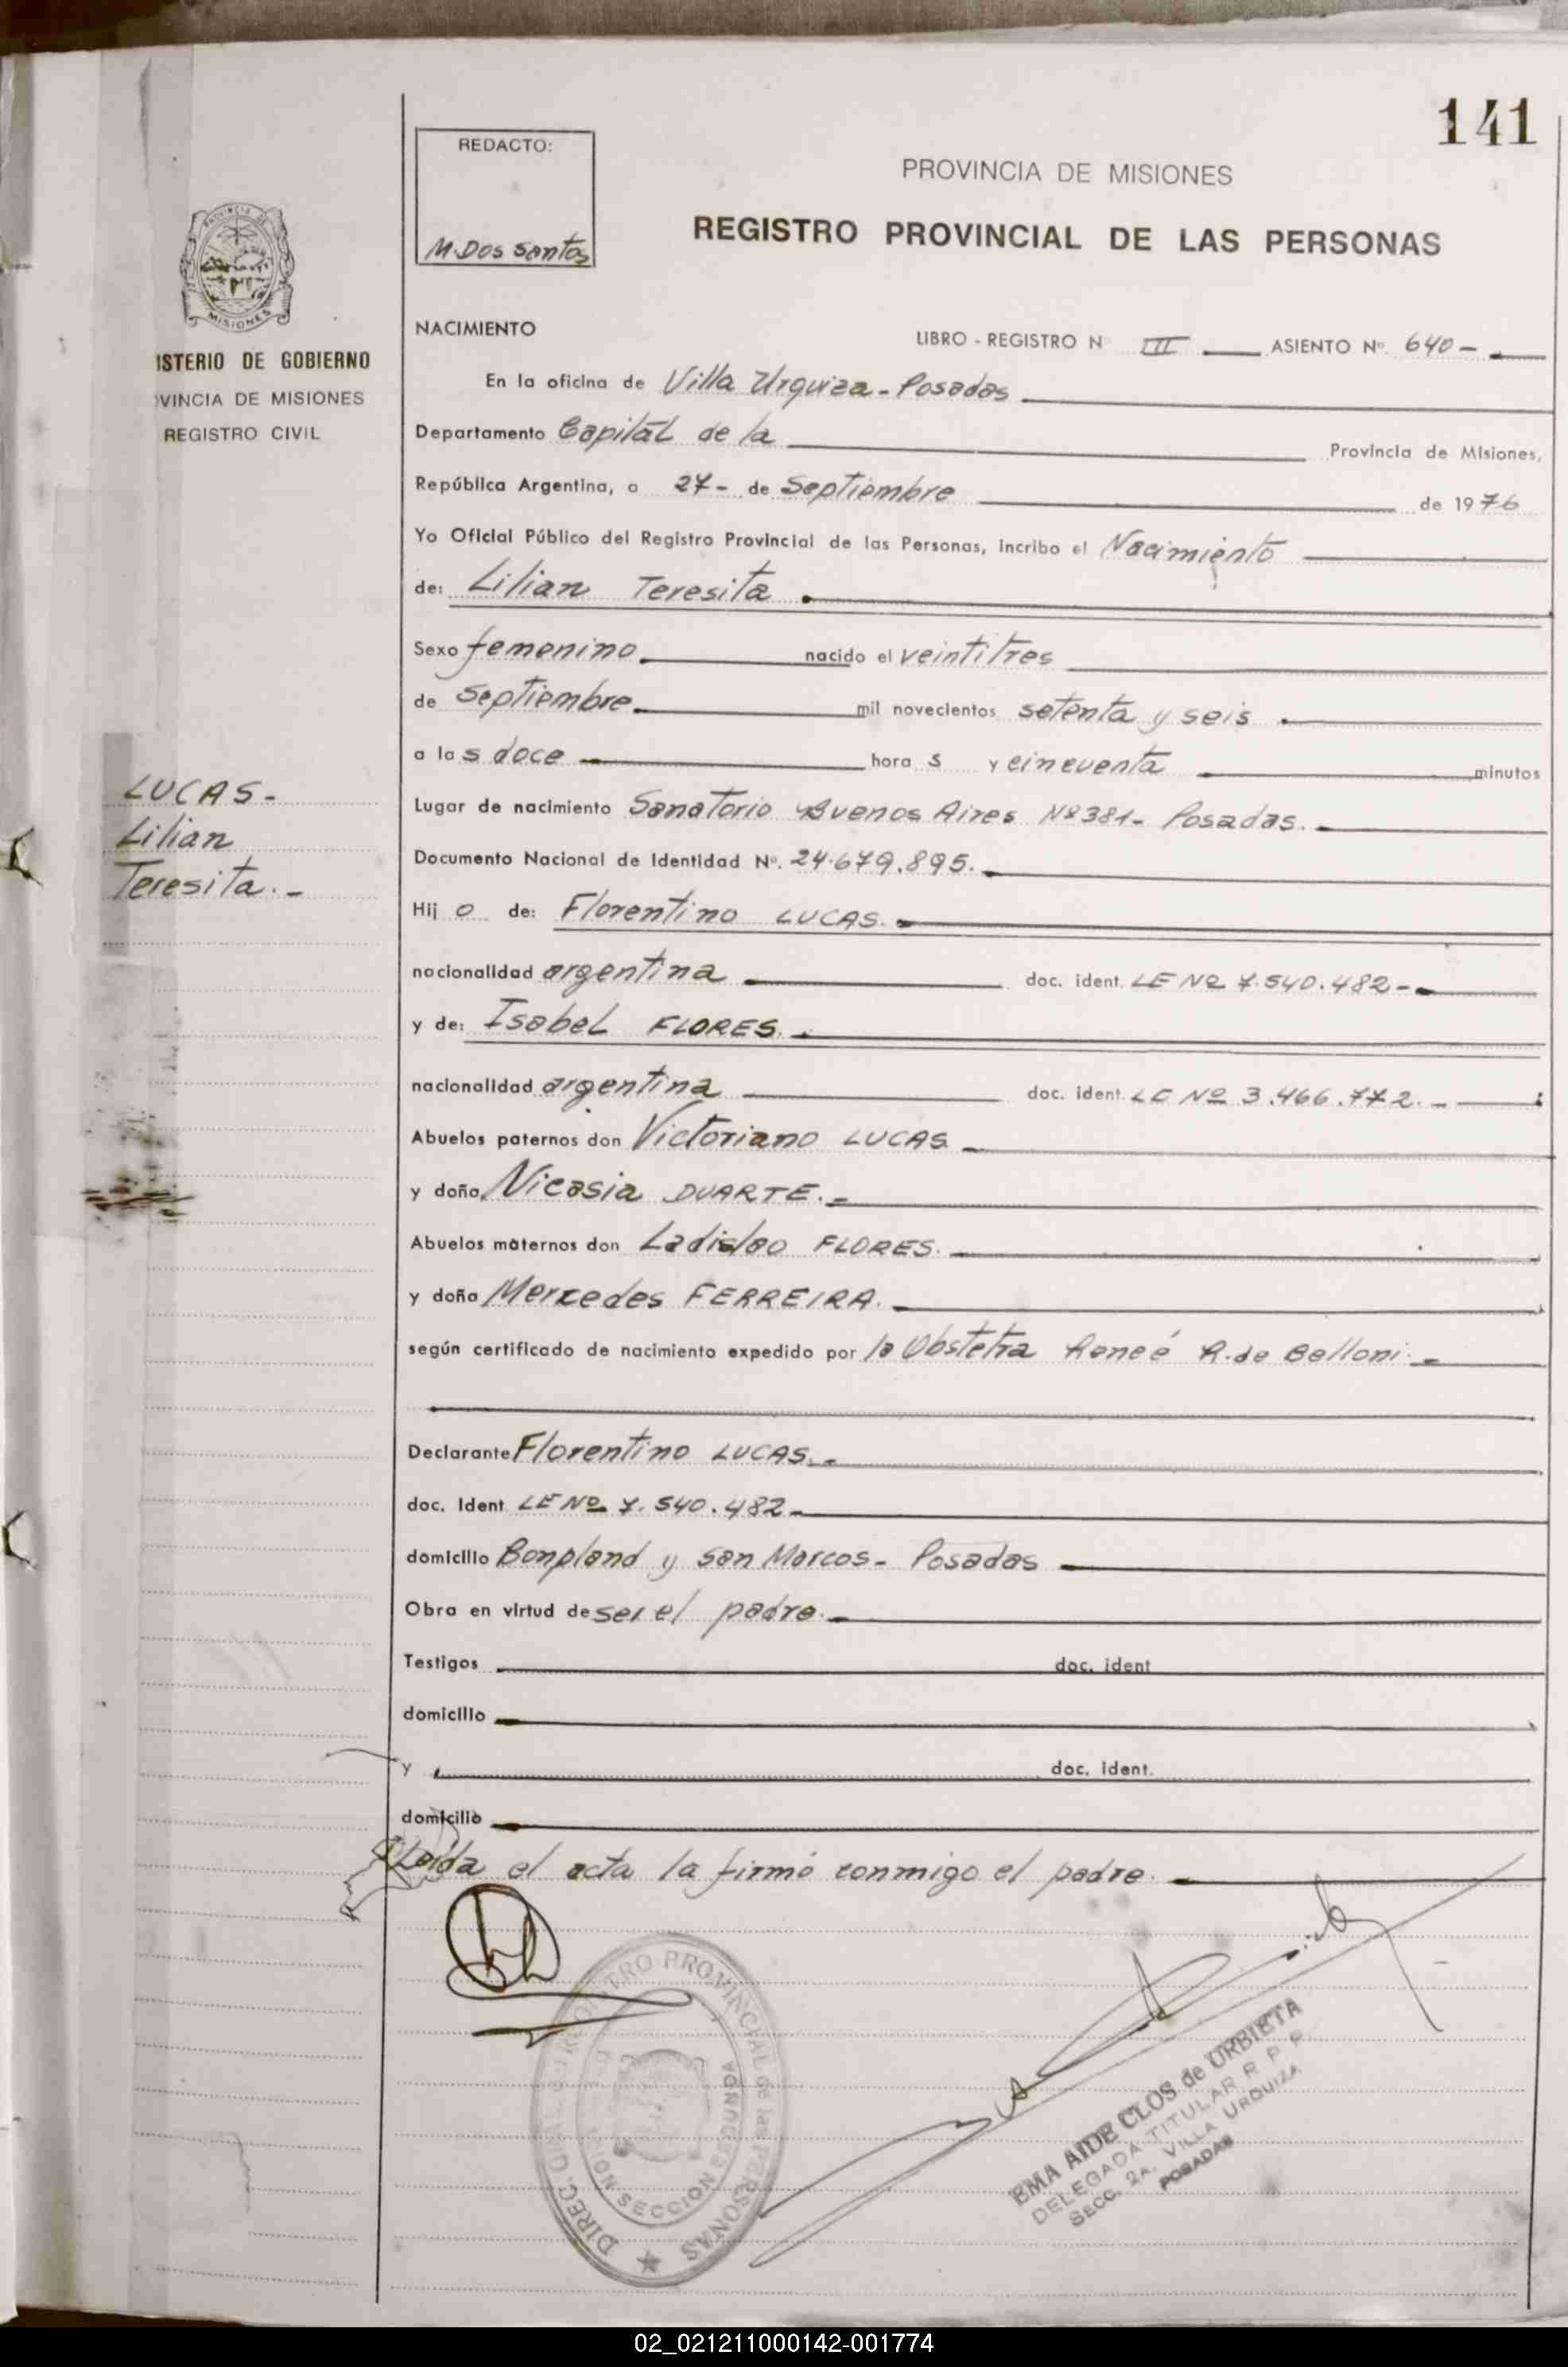 141
REDACTO:
M. Dos Santos
PROVINCIA DE MISIONES
REGISTRO PROVINCIAL DE LAS PERSONAS
MISIONES
ISTERIO DE GOBIERNO
VINCIA DE MISIONES
REGISTRO CIVIL
NACIMIENTO
LIBRO - REGISTRO N III ASIENTO Nº. 640-
En la oficina de Villa Urquiza - Posadas
Departamento Capital de la Provincia de Misiones,
República Argentina, a 27- de Septiembre de 1976
Yo Oficial Público del Registro Provincial de las Personas, incribo el Nacimiento
de: Lilian Teresita
Sexo femenino nacido el veintitres
de septiembre mil novecientos setenta y seis
a las doce horas y cincuenta minutos
LUCAS.-
Lilian
Teresita.-
Lugar de nacimiento Sanatorio Buenos Aires Nº 381- Posadas.
Documento Nacional de Identidad Nº. 24.679.895.
Hijo de: Florentino LUCAS.
nacionalidad argentina doc. ident. LE Nº 7.540.482-
y de: Isabel FLORES.
nacionalidad argentina doc. ident. LC Nº 3.466.772.-
Abuelos paternos don Victoriano LUCAS
y doña Nicasia DUARTE.-
Abuelos maternos don Ladislao FLORES.
y doña Mercedes FERREIRA.
según certificado de nacimiento expedido por la Obstetra Reneé R. de Belloni.-
Declarante Florentino LUCAS.-
doc. Ident LE Nº 7.540.482-
domicilio Bonpland y San Marcos- Posadas
Obra en virtud de ser el padre.-
Testigos doc. ident
domicilio
y doc. ident.
domicilio
Leída el acta la firmó conmigo el padre.
DIREC. GRAL. REGISTRO PROVINCIAL de las PERSONAS
SECCION SEGUNDA
EMA AIDE CLOS de URBIETA
DELEGADA TITULAR R P P
SECC. 2a. VILLA URQUIZA
POSADAS
02_021211000142-001774